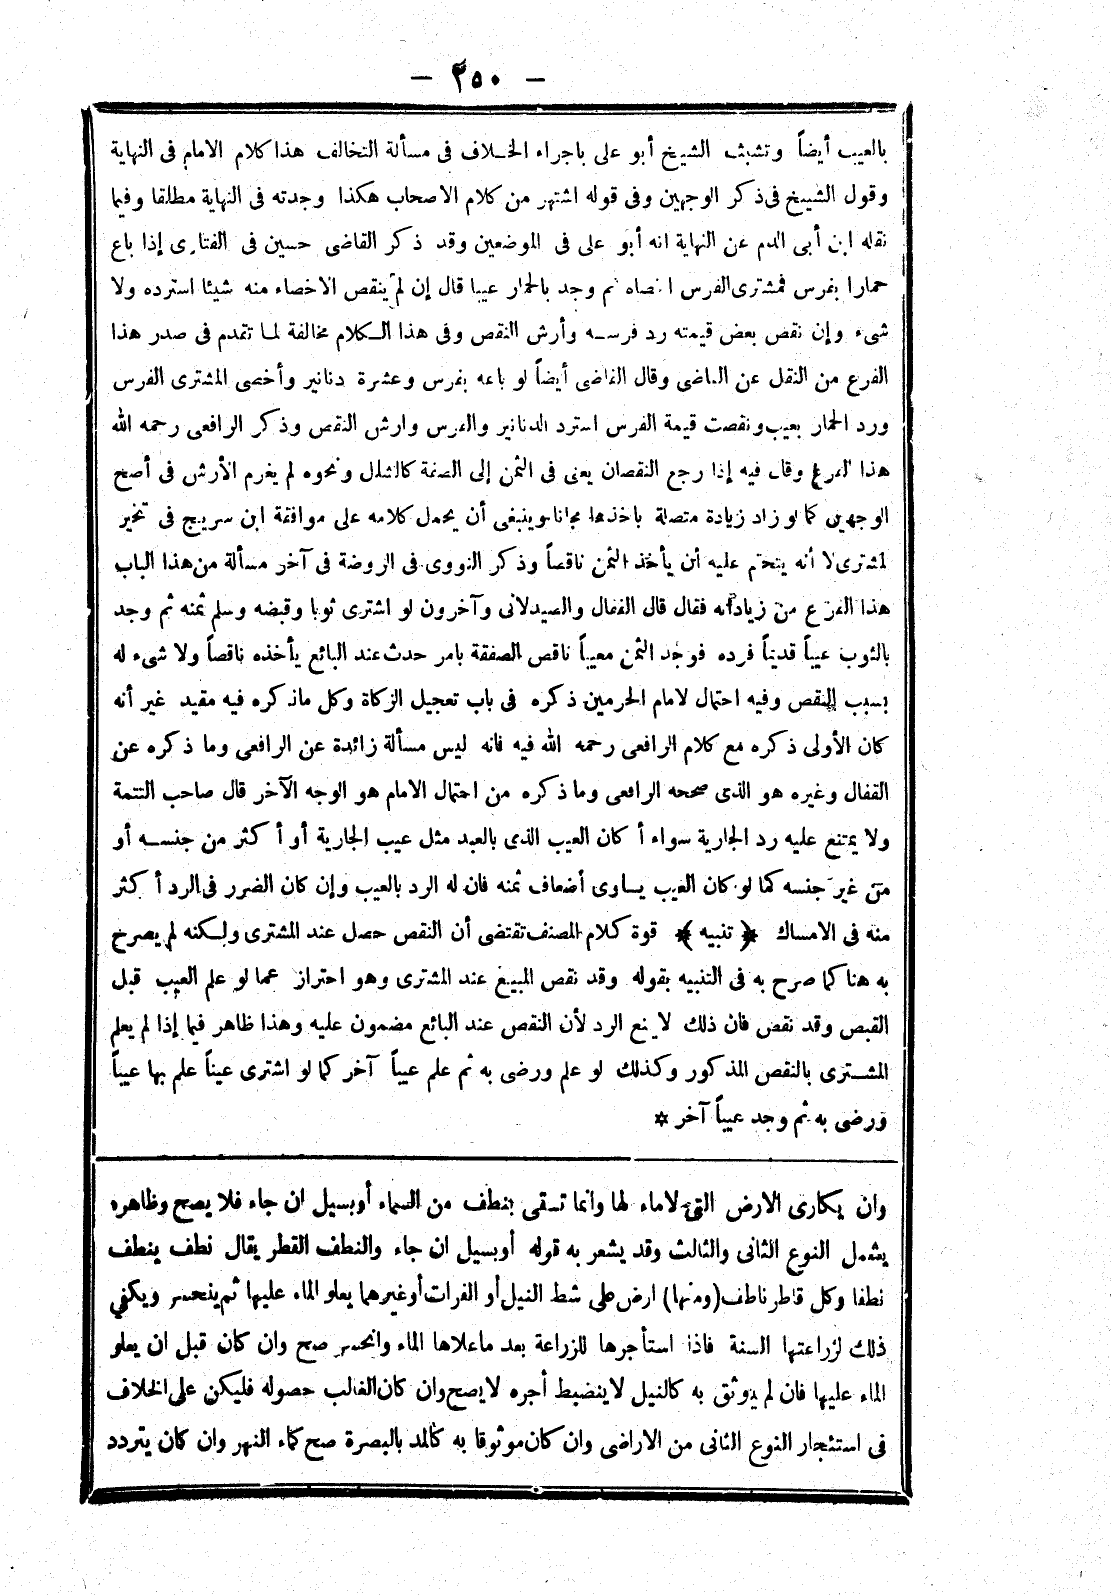 — ٢٥٠ —
بالعيب أيضاً وتشبث الشيخ أبو على باجراء الخلاف فى مسألة التخالف هذا كلام الامام فى النهاية
وقول الشيخ فى ذكر الوجهين وفى قوله اشتهر من كلام الاصحاب هكذا وجدته فى النهاية مطلقا وفيما
نقله ابن أبى الدم عن النهاية انه أبو على فى الموضعين وقد ذكر القاضى حسين فى الفتاوى إذا باع
حمارا بفرس فمشترى الفرس اخصاه ثم وجد بالحمار عيبا قال إن لم ينقص الاخصاء منه شيئا استرده ولا
شىء وإن نقص بعض قيمته رد فرسه وأرش النقص وفى هذا الكلام مخالفة لما تقدم فى صدر هذا
الفرع من النقل عن القاضى وقال القاضى أيضاً لو باعه بفرس وعشرة دنانير وأخصى المشترى الفرس
ورد الحمار بعيب ونقصت قيمة الفرس استرد الدنانير والفرس وارش النقص وذكر الرافعى رحمه الله
هذا الفرع وقال فيه إذا رجع النقصان يعنى فى الثمن إلى الصفة كالشلل ونحوه لم يغرم الأرش فى أصح
الوجهين كما لو زاد زيادة متصلة ياخذها مجانا وينبغى أن يحمل كلامه على موافقة ابن سريج فى تخير
لمشترى لا أنه يتحتم عليه أن يأخذ الثمن ناقصاً وذكر النووى فى الروضة فى آخر مسألة من هذا الباب
هذا الفرع من زياداته فقال قال القفال والصيدلانى وآخرون لو اشترى ثوبا وقبضه وسلم ثمنه ثم وجد
بالثوب عيباً قديماً فرده فوجد الثمن معيباً ناقص الصفقة بامر حدث عند البائع يأخذه ناقصاً ولا شىء له
بسبب النقص وفيه احتمال لامام الحرمين ذكره فى باب تعجيل الزكاة وكل ماذكره فيه مقيد غير أنه
كان الأولى ذكره مع كلام الرافعى رحمه الله فيه فانه ليس مسألة زائدة عن الرافعى وما ذكره عن
القفال وغيره هو الذى صححه الرافعى وما ذكره من احتمال الامام هو الوجه الآخر قال صاحب التتمة
ولا يمتنع عليه رد الجارية سواء أكان العيب الذى بالعبد مثل عيب الجارية أو أكثر من جنسه أو
من غير جنسه كما لو كان العيب يساوى أضعاف ثمنه فان له الرد بالعيب وإن كان الضرر فى الرد أكثر
منه فى الامساك ﴿ تنبيه ﴾ قوة كلام المصنف تقتضى أن النقص حصل عند المشترى ولكنه لم يصرح
به هنا كما صرح به فى التنبيه بقوله وقد نقص المبيع عند المشترى وهو احتراز عما لو علم العيب قبل
القبص وقد نقص فان ذلك لا يمنع الرد لأن النقص عند البائع مضمون عليه وهذا ظاهر فيما إذا لم يعلم
المشترى بالنقص المذكور وكذلك لو علم ورضى به ثم علم عيباً آخر كما لو اشترى عيناً علم بها عيباً
ورضى به ثم وجد عيباً آخر *
وان يكارى الارض التى لاماء لها وانما تسقى بنطف من السماء أوبسيل ان جاء فلا يصح وظاهره
يشمل النوع الثانى والثالث وقد يشعر به قوله أوبسيل ان جاء والنطف القطر يقال نطف ينطف
نطفا وكل قاطر ناطف (ومنها) ارض على شط النيل أو الفرات أوغيرهما يعلو الماء عليها ثم ينحسر ويكفي
ذلك لزراعتها السنة فاذا استأجرها للزراعة بعد ماعلاها الماء وانحسر صح وان كان قبل ان يعلو
الماء عليها فان لم يوثق به كالنيل لاينضبط أجره لايصح وان كان الغالب حصوله فليكن على الخلاف
فى استئجار النوع الثانى من الاراضى وان كان موثوقا به كالمد بالبصرة صح كماء النهر وان كان يتردد